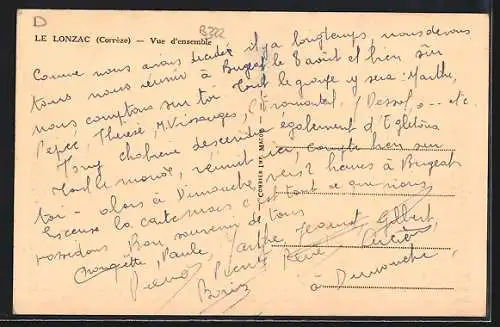 D
B322
LE LONZAC (Corrèze) — Vue d'ensemble
Comme nous avons décidé il y a longtemps, nous devons
tous nous réunir à Bugeat le 8 août et bien sûr
nous comptons sur toi. Tout le groupe y sera : Marthe,
Pepee, Thérèse, M. Vissauges, , etc.
Tony descendra également d'Egletons
Tout le monde, réunit ici, compte bien sur
toi - alors à Dimanche vers 2 heures à Bugeat
Excuse la carte mais c'est tout ce que nous
possédons Bon souvenir de tous
Paule, Marthe, Jeannot, Gilbert,
Pierre René Lucien,
Boris à Dimanche,
COMBIER IMP. MACON